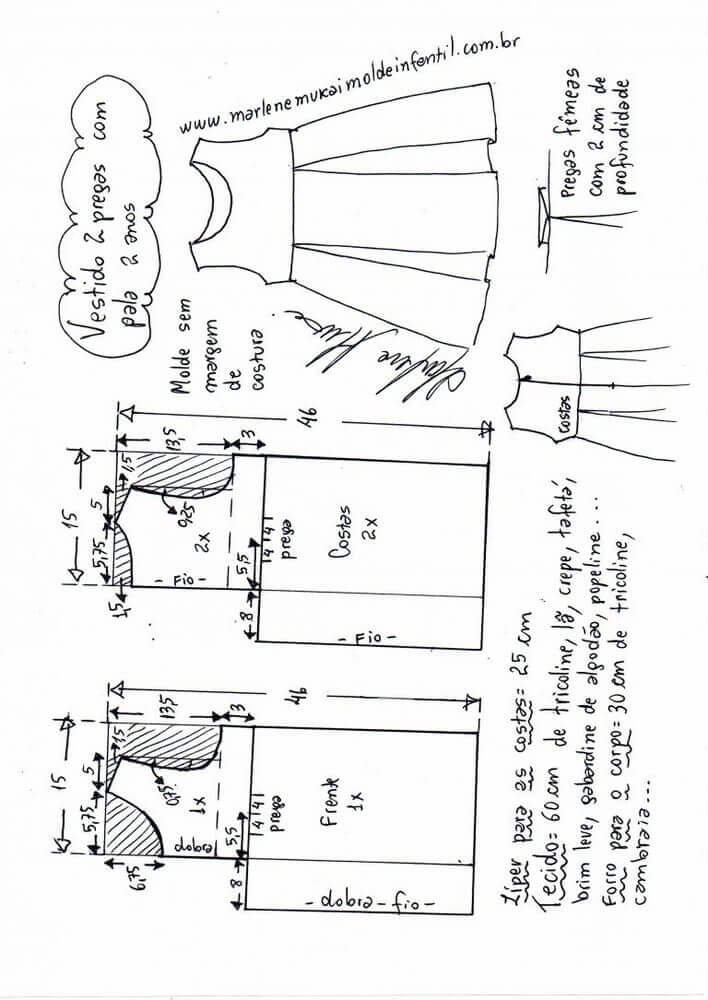 Vestido 2 pregas com
pala 2 anos
www.marlenemukaimoldeinfantil.com.br
Molde sem
margem
de
costura
Pregas fêmeas
com 2 cm de
profundidade
15
5,75
5
1,5
1,5
13,5
3
46
0,25
2x
Fio
5,5
4 4
prega
8
Costas
2x
- Fio -
Costas
15
5,75
5
1,5
13,5
3
46
6,75
0,75
1x
dobra
5,5
4 4
prega
8
Frente
1x
- dobra - fio -
Zíper para as costas = 25 cm
Tecido = 60 cm de tricoline, lã, crepe, tafetá,
brim leve, gabardine de algodão, popeline...
Forro para o corpo = 30 cm de tricoline,
cambraia...